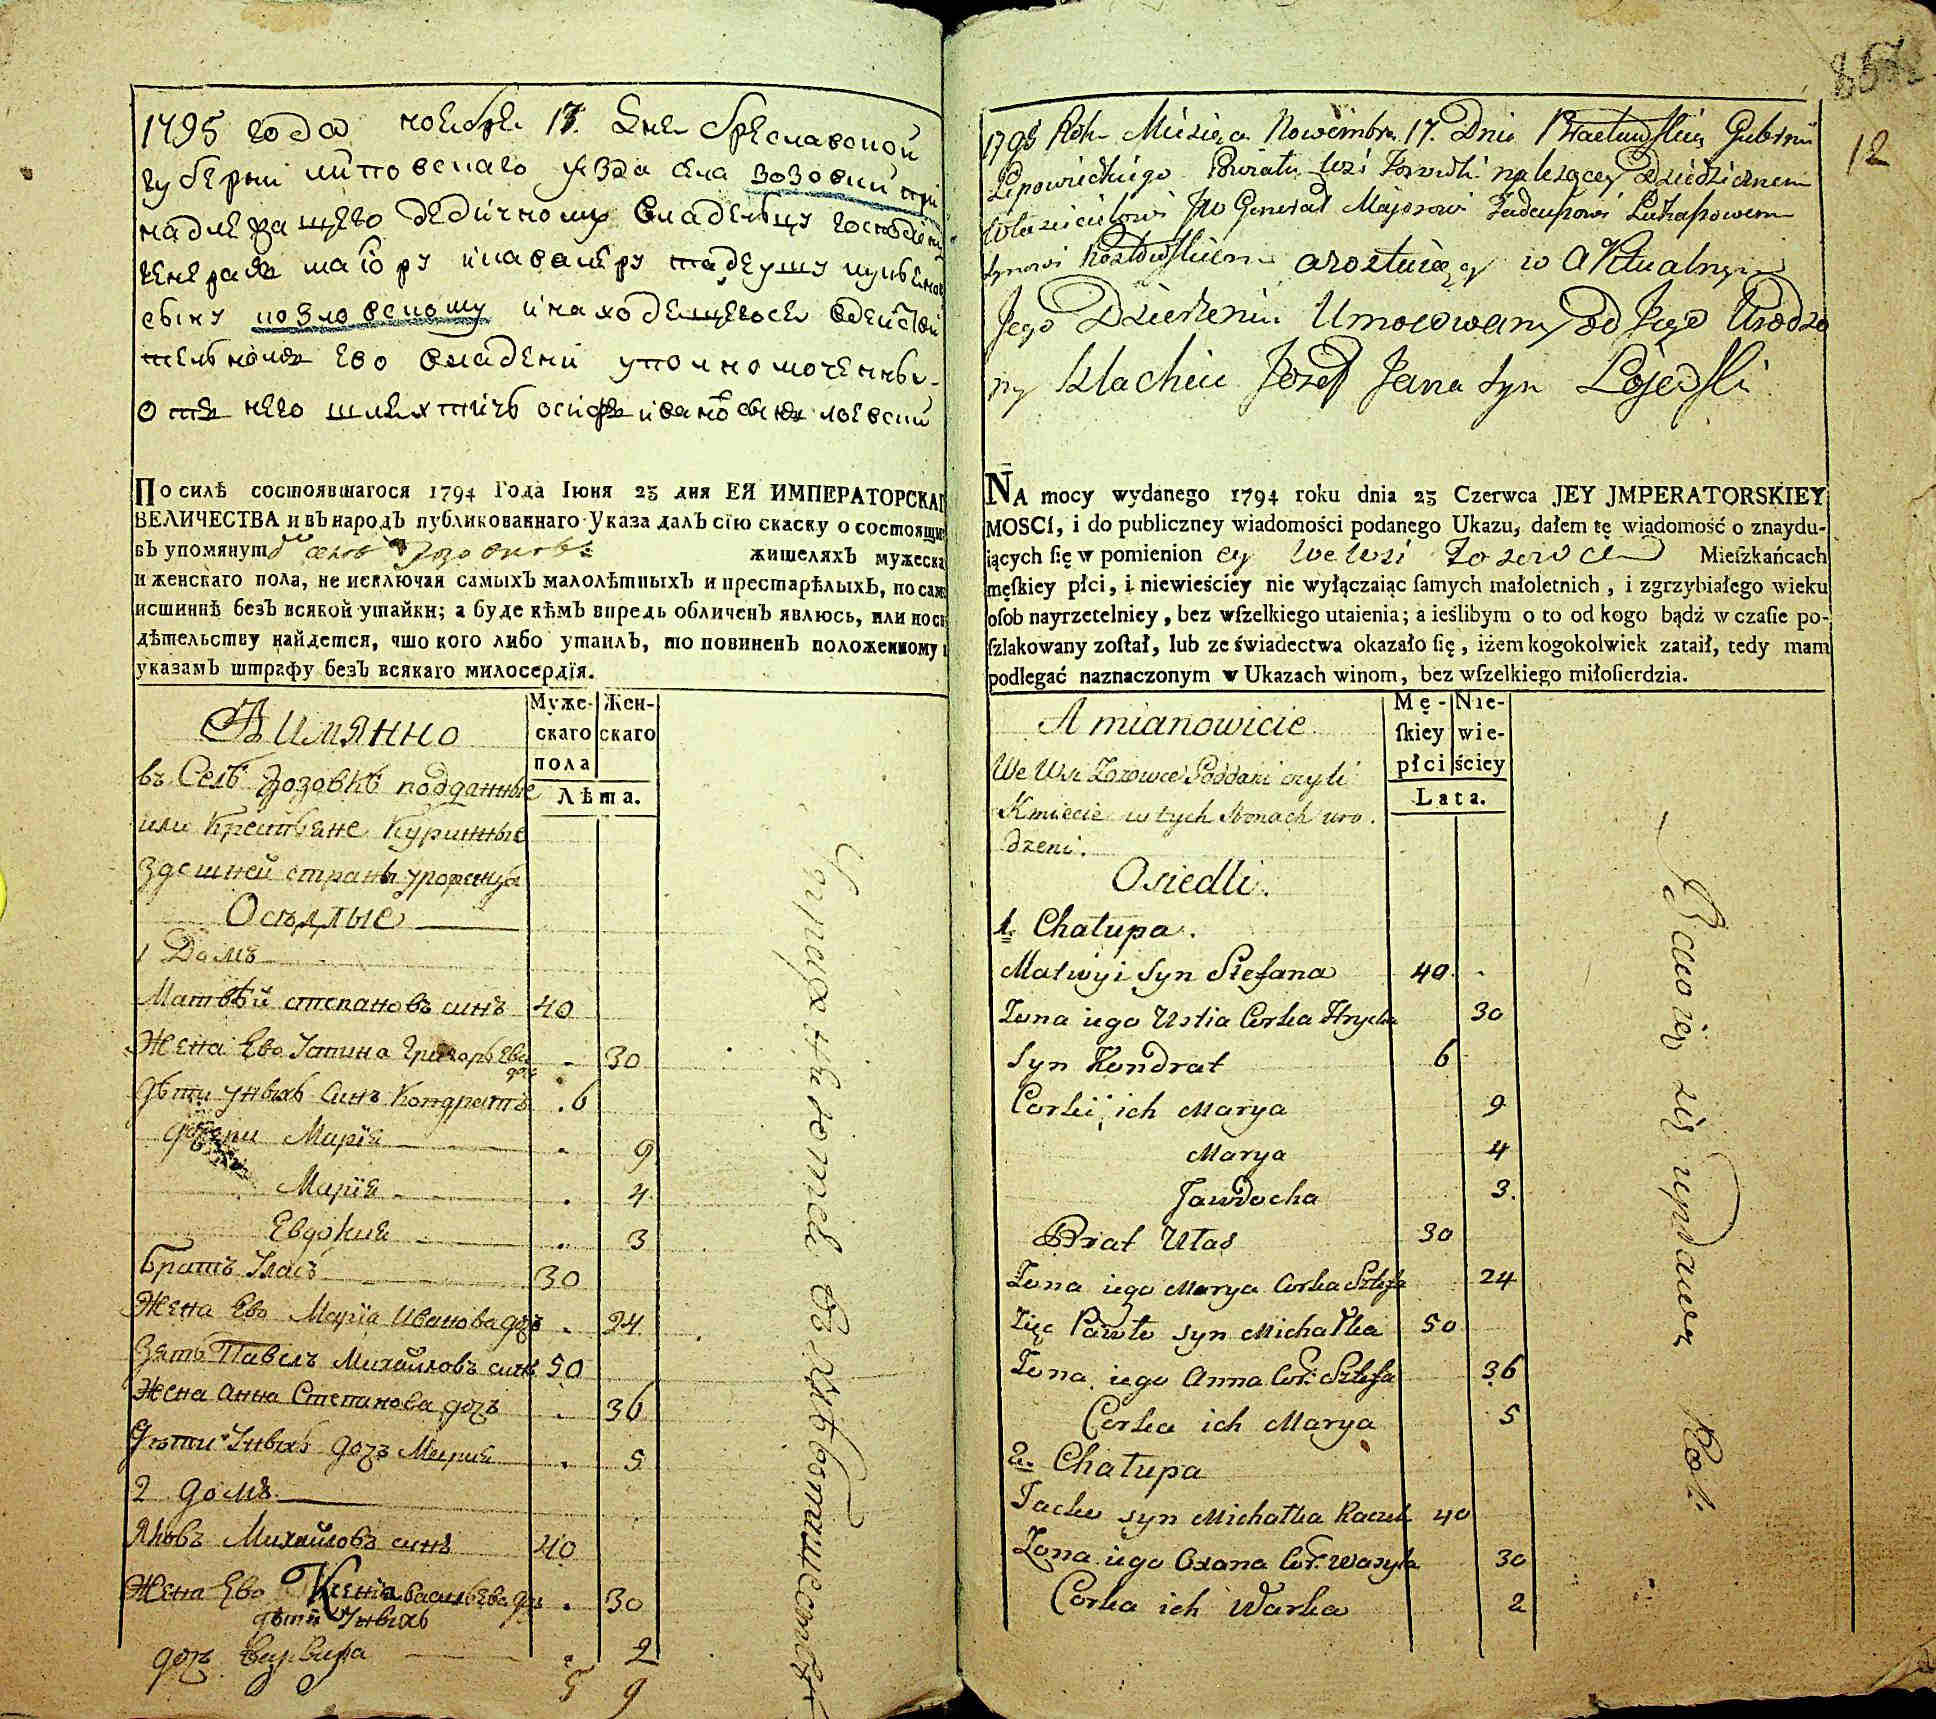 1795 года ноебре 17. Дне бреславской
губернй липовецкаго уезда села зозовки при
надлежащего дедичному владельцу господину
генерал маиору и кавалеру тадеушу
сыну козловскому и находещегосе в действи
тельном его владени уполномоченны
от него шляхтичъ осиф иванов сын лоевский
По силѣ состоявшагося 1794 Года Іюня 23 дня ЕЯ ИМПЕРАТОРСКАГ
ВЕЛИЧЕСТВА и въ народъ публикованнаго Указа далъ сію скаску о состоящи
въ упомянут селе Зозовке жишеляхъ мужеска
и женскаго пола, не исключая самыхъ малолѣтныхъ и престарѣлыхъ, по сам
истиннѣ безъ всякой утайки; а буде кѣмъ впредь обличенъ явлюсь, или по св
дѣтельству найдется, что кого либо утаилъ, то повиненъ положенному
указамъ штрафу безъ всякаго милосердія.
А имянно
Муже- скаго пола
Жен- скаго
Лѣта.
въ Селѣ Зозовкѣ подданные
или Крестьяне Куринные
здешней страны урожонцы
Осѣдлые
1 Домъ
Матвѣй степановъ синъ 40
Жена Ево Устина Григорьева доч 30
дѣти у нихъ Синъ Кондратъ 6
дочери Марїя 9
Марїя 4
Евдокия 3
Братъ Уласъ 30
Жена Ево Марїа Иванова дочъ 24
Зять Павелъ Михайловъ синъ 50
Жена анна Степанова дочъ 36
Дѣти у нихъ дочъ Мария 5
2 домъ
Яковъ Михайловъ синъ 40
Жена Ево Ксенїа васильева доч 30
дѣти у нихъ
дочъ Варвара 2
5 9
12
1795 Roku Miesiąca Nowembra 17. Dnia Bracławskiey Gubernii
Lipowieckiego Powiatu Wsi Zozowki należącey Dziedzicznem
Włascicielowi JW Generał Majorowi Tadeuszowi Łukaszowem
synowi Kozłowskiemu a zostaiącey w Aktualnym
Jego Dzierżeniu Umocowany od Jego Urodzo
ny Szlachcic Jozef Jana syn Łojewski
NA mocy wydanego 1794 roku dnia 23 Czerwca JEY JMPERATORSKIEY
MOSCI, i do publiczney wiadomości podanego Ukazu, dałem tę wiadomość o znaydu-
iących ſię w pomienion ey we wsi Zozowce Mieſzkańcach
męſkiey płci, i niewieściey nie wyłączaiąc ſamych małoletnich, i zgrzybiałego wieku
oſob nayrzetelniey, bez wſzelkiego utaienia; a ieślibym o to od kogo bądź w czaſie po-
ſzlakowany zoſtał, lub ze świadectwa okazało ſię, iżem kogokolwiek zataił, tedy mam
podlegać naznaczonym w Ukazach winom, bez wſzelkiego miłoſierdzia.
A mianowicie
Mę- ſkiey płci
Nie- wie- ściey
Lata.
We Wsi Zozowce Poddani czyli
Kmiecie w tych Stronach uro.
dzeni.
Osiedli.
1. Chałupa.
Matwiyi syn Stefana 40
Zona iego Ustia Corka Hryćka 30
Syn Kondrat 6
Corki ich Marya 9
Marya 4
Jawdocha 3.
Brat Ułas 30
Zona iego Marya Corka 24
Zięc Pawło syn Michałka 50
Zona iego Anna Cor: 36
Corka ich Marya 5
2. Chałupa
Jacko syn Michałka 40
Zona iego Oxana Cor: Wasyla 30
Corka ich Warka 2